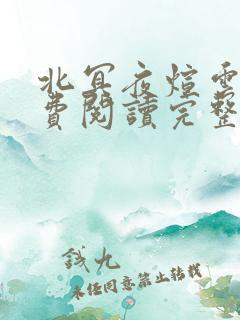 北冥夜煊雲
費閱讀完整
錢九
未經同意禁止轉載